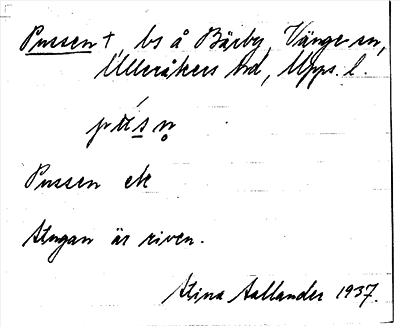 Pussen †, bs å Bärby, Vänge sn,
Ulleråkers hd, Upps. l.
Pussen ek
Stugan är riven.
Stina Sallander 1937.